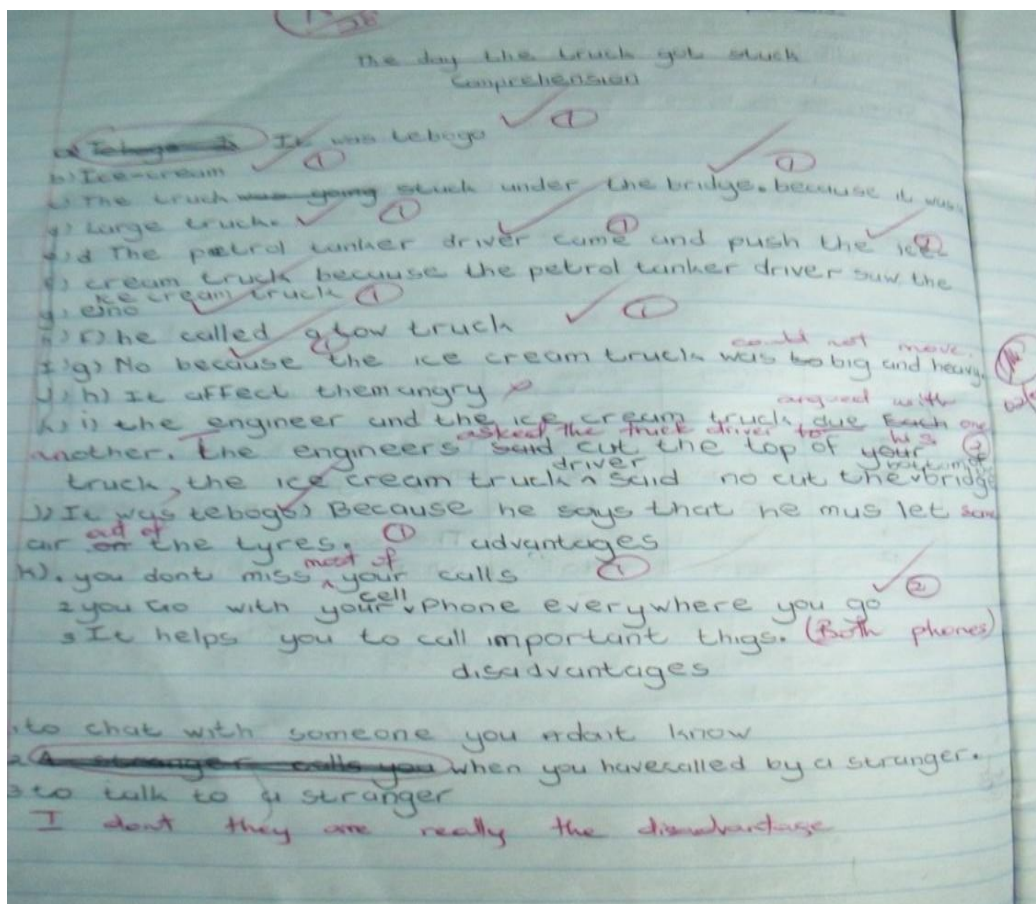 28
The day the truck got stuck
Comprehension
It was tebogo ①
b) Ice-cream ① ①
The truck was going stuck under the bridge. because it was
Large truck. ① ①
d The petrol tanker driver came and push the ice
cream truck because the petrol tanker driver saw the
ice cream truck ①
e) no
f) he called a tow truck ①
could not move.
g) No because the ice cream truck was to big and heavy. ①
h) It affect them angry
argued with
i) the engineer and the ice cream truck due Each one
asked the truck driver to his ②
another. the engineers said cut the top of your
driver bottom of
truck, the ice cream truck said no cut the bridge
j) It was tebogo) Because he says that he mus let some
out of
air on the tyres. ① advantages
most of
k). you dont miss your calls ①
cell ②
2 you Go with your phone everywhere you go
3 It helps you to call important thigs. (Both phones)
disadvantages
1. to chat with someone you dont know
2 A stranger calls you when you havecalled by a stranger.
3 to talk to a stranger
I dont they are really the disadvantage